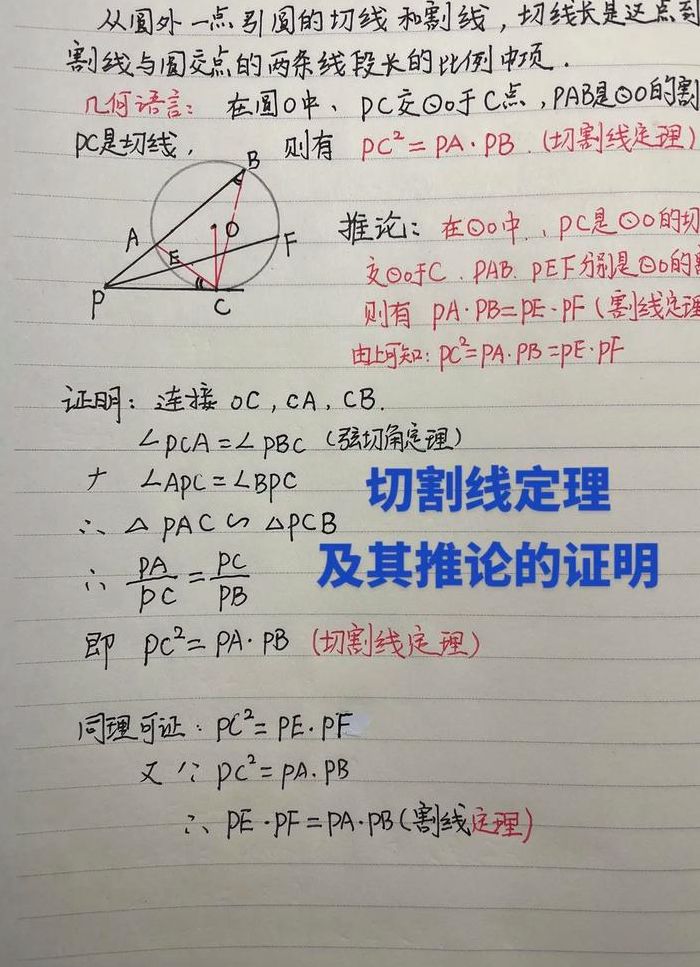 从圆外一点引圆的切线和割线,切线长是这点到
割线与圆交点的两条线段长的比例中项.
几何语言: 在圆O中、PC交⊙O于C点,PAB是⊙O的割
PC是切线, 则有 PC²=PA·PB.(切割线定理)
B
A
O
E
F
P
C
推论: 在⊙O中.、PC是⊙O的切
交⊙O于C.PAB.PEF分别是⊙O的
则有 PA·PB=PE·PF(割线定理
由上可知: PC²=PA·PB=PE·PF
证明: 连接 OC,CA,CB.
∠PCA=∠PBC (弦切角定理)
∠APC=∠BPC
∴ △PAC∽△PCB
∴ PA/PC=PC/PB
即 PC²=PA·PB (切割线定理)
切割线定理
及其推论的证明
同理可证: PC²=PE·PF
又∵ PC²=PA.PB
∴ PE·PF=PA·PB(割线定理)